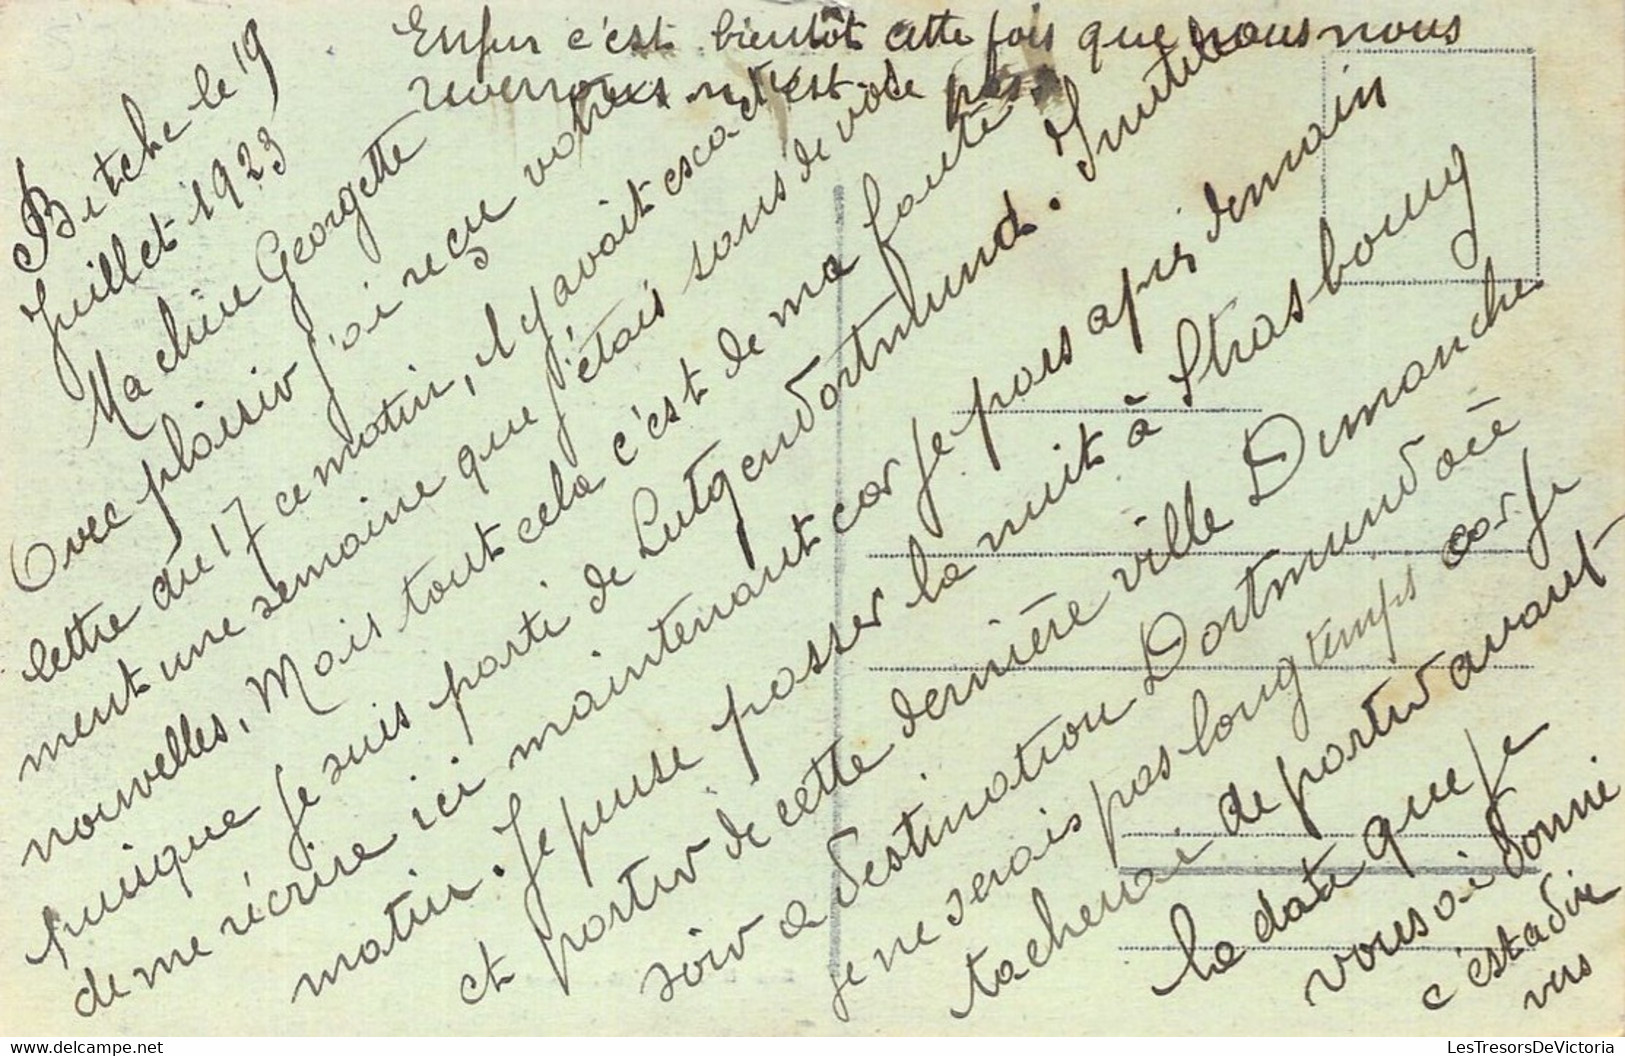 Enfin c'est bientôt cette fois que nous nous
reverrons n'est ce pas.
Bitche le 19
Juillet 1923
Ma chère Georgette
Avec plaisir j'ai reçu votre
lettre du 17 ce matin, il y avait exacte
ment une semaine que j'étais sans de vos
nouvelles, Mais tout cela c'est de ma faute
puisque je suis parti de Lutgendortmund. Inutile
de me récrire ici maintenant car je pars après demain
matin. Je pense passer la nuit à Strasbourg
et partir de cette dernière ville Dimanche
soir a destination Dortmund où
je ne serais pas longtemps car je
tacherai de partir avant
la date que je
vous ai donné
c'est a dire
vers
LesTresorsDeVictoria
www.delcampe.net